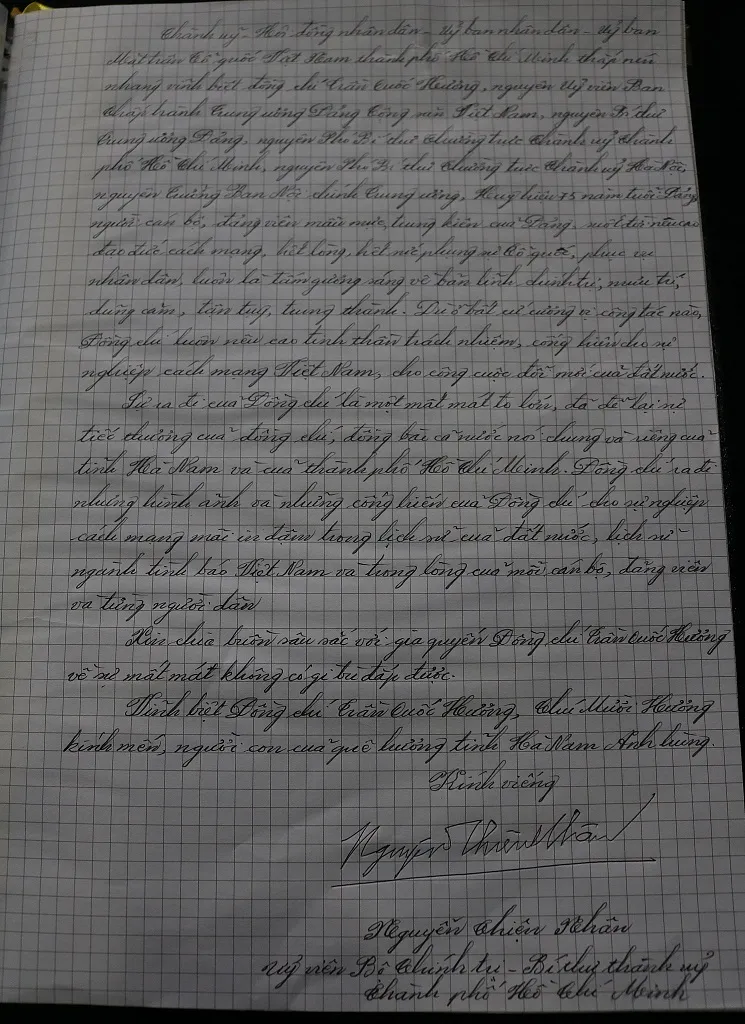 Thành uỷ - Hội đồng nhân dân - Uỷ ban nhân dân - Uỷ ban
Mặt trận Tổ quốc Việt Nam thành phố Hồ Chí Minh thắp nén
nhang vĩnh biệt đồng chí Trần Quốc Hương, nguyên Uỷ viên Ban
Chấp hành Trung ương Đảng Cộng sản Việt Nam, nguyên Bí thư
Trung ương Đảng, nguyên Phó Bí thư Thường trực Thành uỷ Thành
phố Hồ Chí Minh, nguyên Phó Bí thư Thường trực Thành uỷ Hà Nội,
nguyên Trưởng Ban Nội chính Trung ương, Huy hiệu 75 năm tuổi Đảng,
người cán bộ, đảng viên mẫu mực, trung kiên của Đảng, một đời nêu cao
đạo đức cách mạng, hết lòng, hết sức phụng sự Tổ quốc, phục vụ
nhân dân, luôn là tấm gương sáng về bản lĩnh chính trị, mưu trí,
dũng cảm, tận tuỵ, trung thành. Dù ở bất cứ cương vị công tác nào,
Đồng chí luôn nêu cao tinh thần trách nhiệm, cống hiến cho sự
nghiệp cách mạng Việt Nam, cho công cuộc đổi mới của đất nước.
Sự ra đi của Đồng chí là một mất mát to lớn, đã để lại sự
tiếc thương của đồng chí, đồng bào cả nước nói chung và riêng của
tỉnh Hà Nam và của thành phố Hồ Chí Minh. Đồng chí ra đi
nhưng hình ảnh và những cống hiến của Đồng chí cho sự nghiệp
cách mạng mãi in đậm trong lịch sử của đất nước, lịch sử
ngành tình báo Việt Nam và trong lòng của mỗi cán bộ, đảng viên
và từng người dân
Xin chia buồn sâu sắc với gia quyến Đồng chí Trần Quốc Hương
về sự mất mát không có gì bù đắp được.
Vĩnh biệt Đồng chí Trần Quốc Hương, Chú Mười Hương
kính mến, người con của quê hương tỉnh Hà Nam Anh hùng.
Kính viếng
Nguyễn Thiện Nhân
Nguyễn Thiện Nhân
Uỷ viên Bộ Chính trị - Bí thư thành uỷ
Thành phố Hồ Chí Minh